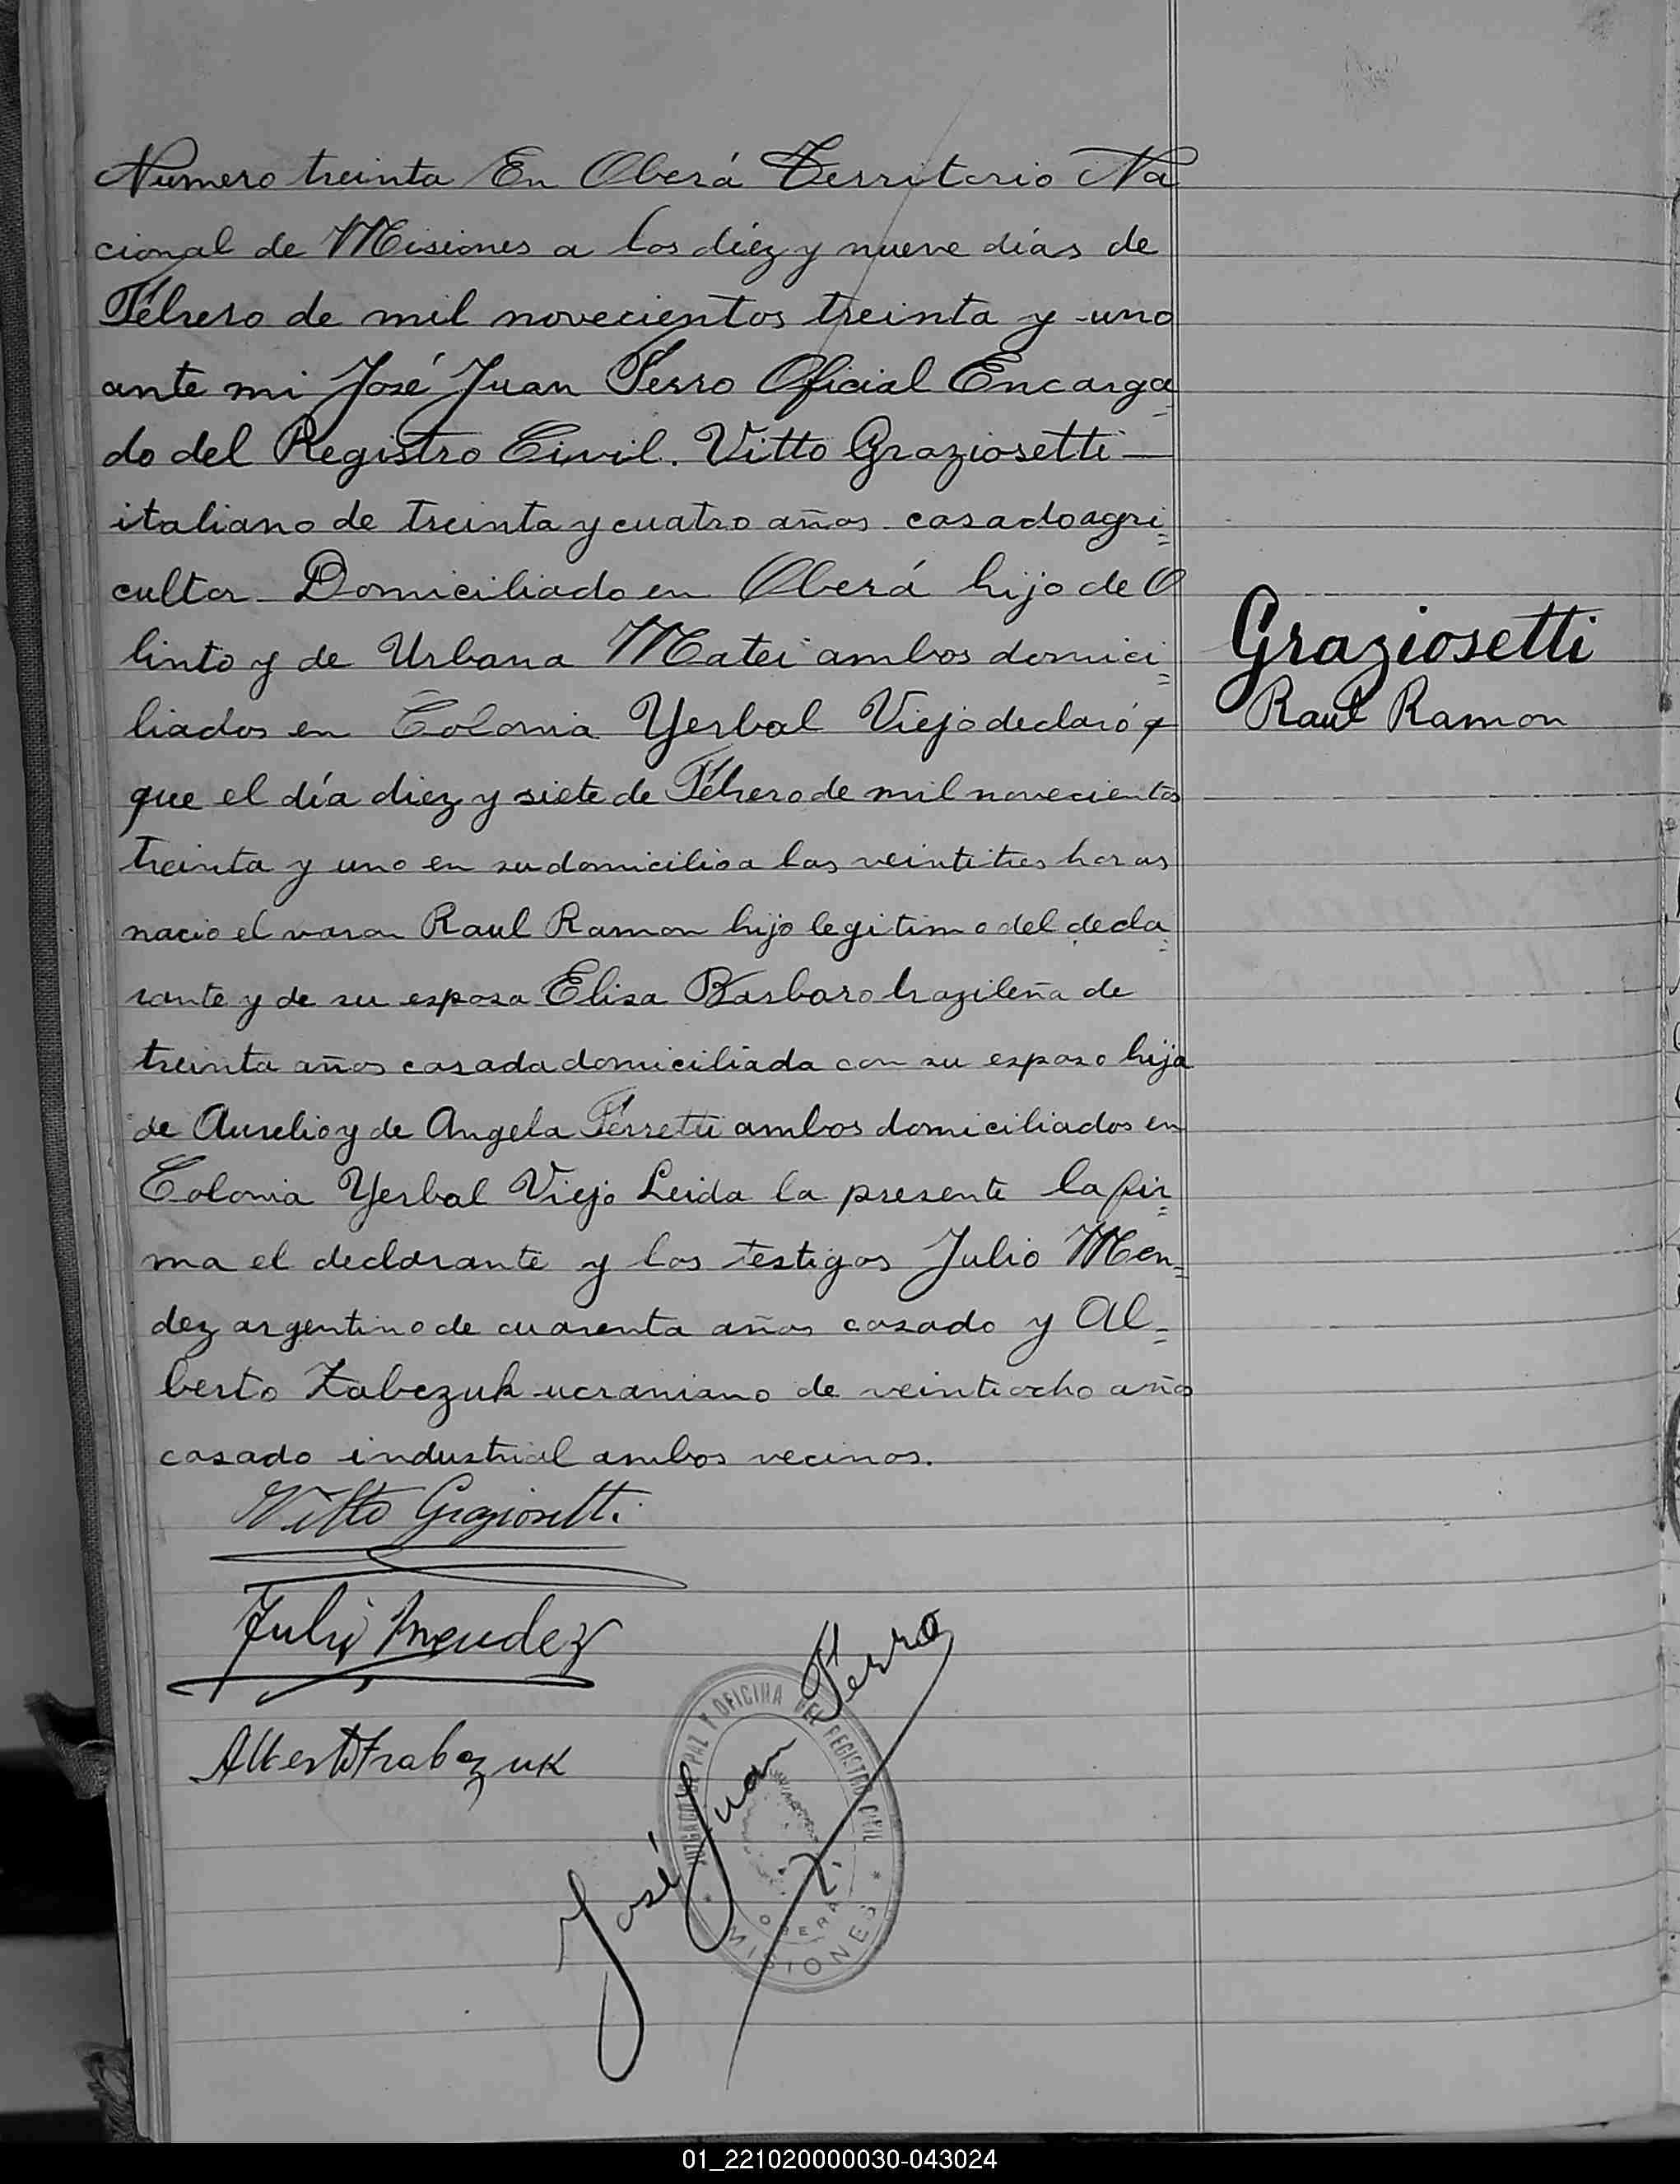 Numero treinta En Oberá Territorio Na
cional de Misiones a los diéz y nueve días de
Febrero de mil novecientos treinta y uno
ante mi José Juan Ferro Oficial Encarga
do del Registro Civil. Vitto Graziosetti
italiano de treinta y cuatro años casado agri=
cultor Domiciliado en Oberá hijo de O
linto y de Urbana Matei ambos domici=
liados en Colonia Yerbal Viejo declaró
que el día diez y siete de Febrero de mil novecientos
treinta y uno en su domicilio a las veintitres horas
nacio el varon Raul Ramon hijo legitimo del decla=
rante y de su esposa Elisa Barbaro brazileña de
treinta años casada domiciliada con su esposo hija
de Aurelio y de Angela Ferretti ambos domiciliados en
Colonia Yerbal Viejo Leida la presente la fir=
ma el declarante y los testigos Julio Men=
dez argentino de cuarenta años casado y Al=
berto Zabczuk ucraniano de veintiocho años
casado industrial ambos vecinos.
Graziosetti
Raul Ramon
Vitto Graziosetti.
Julio Mendez
José Juan Ferro
JUZGADO DE PAZ Y OFICINA DEL REGISTRO CIVIL
OBERA
* MISIONES *
01_221020000030-043024